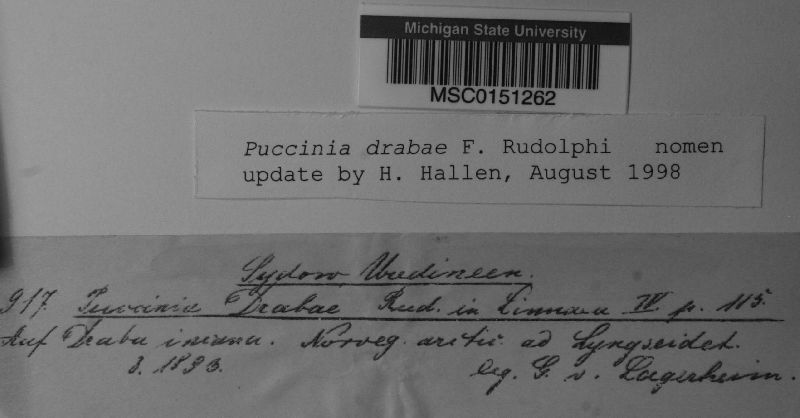 Michigan State University
MSC0151262
Puccinia drabae F. Rudolphi nomen
update by H. Hallen, August 1998
Sydow, Uredineen.
917. Puccinia Drabae Rud. in Linnaea IV p. 115.
Auf Draba incana. Norveg. arctic. ad Lyngseidet.
8. 1893. leg. G. v. Lagerheim.